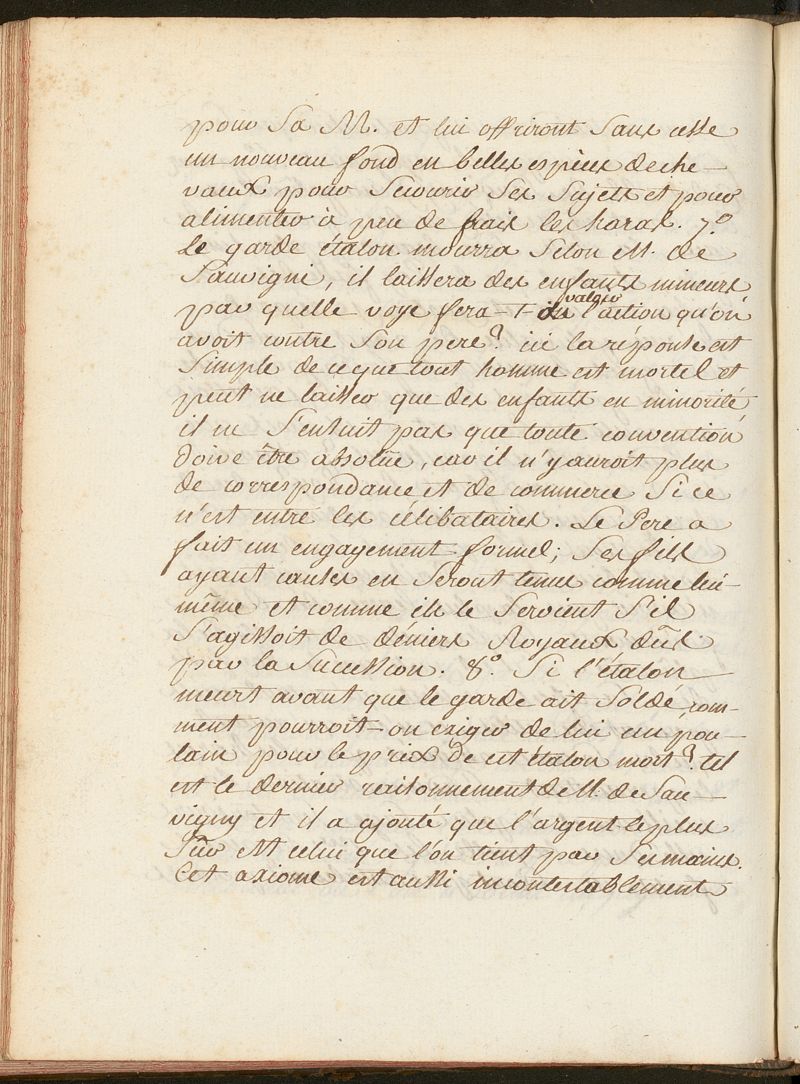 pour Sa M. et lui offriront sans cesse
un nouveau fond en belles espèces de che-
vaux pour secourir ses sujets et pour
alimenter à peu de frais les haras. 7.°
Le garde étalon mourra selon M. de
Sauvigni, il laissera des enfants mineurs
par quelle voye fera-t-on valoir l'action qu'on
avoit contre son pere? ici la réponse est
simple de ce que tout homme est mortel et
peut ne laisser que des enfants en minorité,
il ne s'ensuit pas que toute convention
doive être absolüe, car il n'y auroit plus
de correspondance et de commerce si ce
n'est entre les célibataires. Le Pere a
fait un engagement formel; ses fils
ayant causes en seront tenus comme lui
même et comme ils le seroient s'il
s'agissoit de déniers Royaux dûs
par la succession. 8.° Si l'étalon
meurt avant que le garde ait soldé, com-
ment pourroit-on exiger de lui un pou-
lain pour le prix de cet étalon mort? tel
est le dernier raisonnement de M. de Sau-
vigny et il a ajouté que l'argent le plus
sûr est celui que l'on tient par ses mains.
Cet axiome est aussi incontestablement